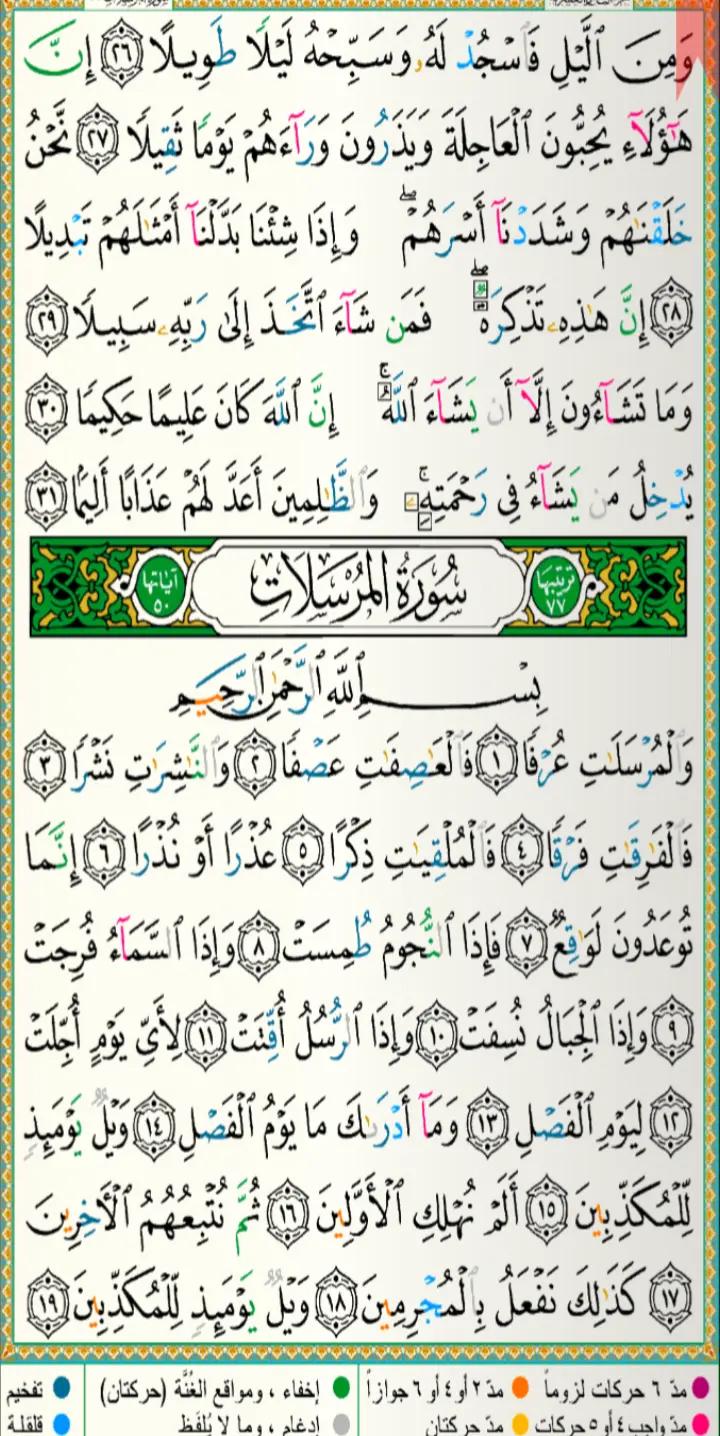 وَمِنَ ٱلَّيْلِ فَٱسْجُدْ لَهُۥ وَسَبِّحْهُ لَيْلًا طَوِيلًا ٢٦ إِنَّ
هَٰٓؤُلَآءِ يُحِبُّونَ ٱلْعَاجِلَةَ وَيَذَرُونَ وَرَآءَهُمْ يَوْمًا ثَقِيلًا ٢٧ نَّحْنُ
خَلَقْنَٰهُمْ وَشَدَدْنَآ أَسْرَهُمْ ۖ وَإِذَا شِئْنَا بَدَّلْنَآ أَمْثَٰلَهُمْ تَبْدِيلًا
٢٨ إِنَّ هَٰذِهِۦ تَذْكِرَةٌ ۖ فَمَن شَآءَ ٱتَّخَذَ إِلَىٰ رَبِّهِۦ سَبِيلًا ٢٩
وَمَا تَشَآءُونَ إِلَّآ أَن يَشَآءَ ٱللَّهُ ۚ إِنَّ ٱللَّهَ كَانَ عَلِيمًا حَكِيمًا ٣٠
يُدْخِلُ مَن يَشَآءُ فِى رَحْمَتِهِۦ ۚ وَٱلظَّٰلِمِينَ أَعَدَّ لَهُمْ عَذَابًا أَلِيمًۢا ٣١
ترتيبها ٧٧ سُورَةُ الْمُرْسَلَاتِ آياتها ٥٠
بِسْمِ ٱللَّهِ ٱلرَّحْمَٰنِ ٱلرَّحِيمِ
وَٱلْمُرْسَلَٰتِ عُرْفًا ١ فَٱلْعَٰصِفَٰتِ عَصْفًا ٢ وَٱلنَّٰشِرَٰتِ نَشْرًا ٣
فَٱلْفَٰرِقَٰتِ فَرْقًا ٤ فَٱلْمُلْقِيَٰتِ ذِكْرًا ٥ عُذْرًا أَوْ نُذْرًا ٦ إِنَّمَا
تُوعَدُونَ لَوَٰقِعٌ ٧ فَإِذَا ٱلنُّجُومُ طُمِسَتْ ٨ وَإِذَا ٱلسَّمَآءُ فُرِجَتْ
٩ وَإِذَا ٱلْجِبَالُ نُسِفَتْ ١٠ وَإِذَا ٱلرُّسُلُ أُقِّتَتْ ١١ لِأَىِّ يَوْمٍ أُجِّلَتْ
١٢ لِيَوْمِ ٱلْفَصْلِ ١٣ وَمَآ أَدْرَىٰكَ مَا يَوْمُ ٱلْفَصْلِ ١٤ وَيْلٌ يَوْمَئِذٍ
لِّلْمُكَذِّبِينَ ١٥ أَلَمْ نُهْلِكِ ٱلْأَوَّلِينَ ١٦ ثُمَّ نُتْبِعُهُمُ ٱلْءَاخِرِينَ
١٧ كَذَٰلِكَ نَفْعَلُ بِٱلْمُجْرِمِينَ ١٨ وَيْلٌ يَوْمَئِذٍ لِّلْمُكَذِّبِينَ ١٩
مدّ ٦ حركات لزوماً مدّ ٢ أو ٤ أو ٦ جوازاً إخفاء ، ومواقع الغُنَّة (حركتان) تفخيم
مدّ واجب ٤ أو ٥ حركات مدّ حركتان إدغام ، وما لا يُلفَظ قلقلة